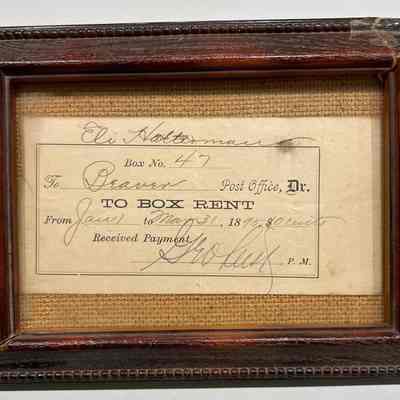 Eli Halterman
Box No. 47
To Beaver Post Office, Dr.
TO BOX RENT
From Jan 1 to Mar 31 189 30 cents
Received Payment,
Geo P. M.